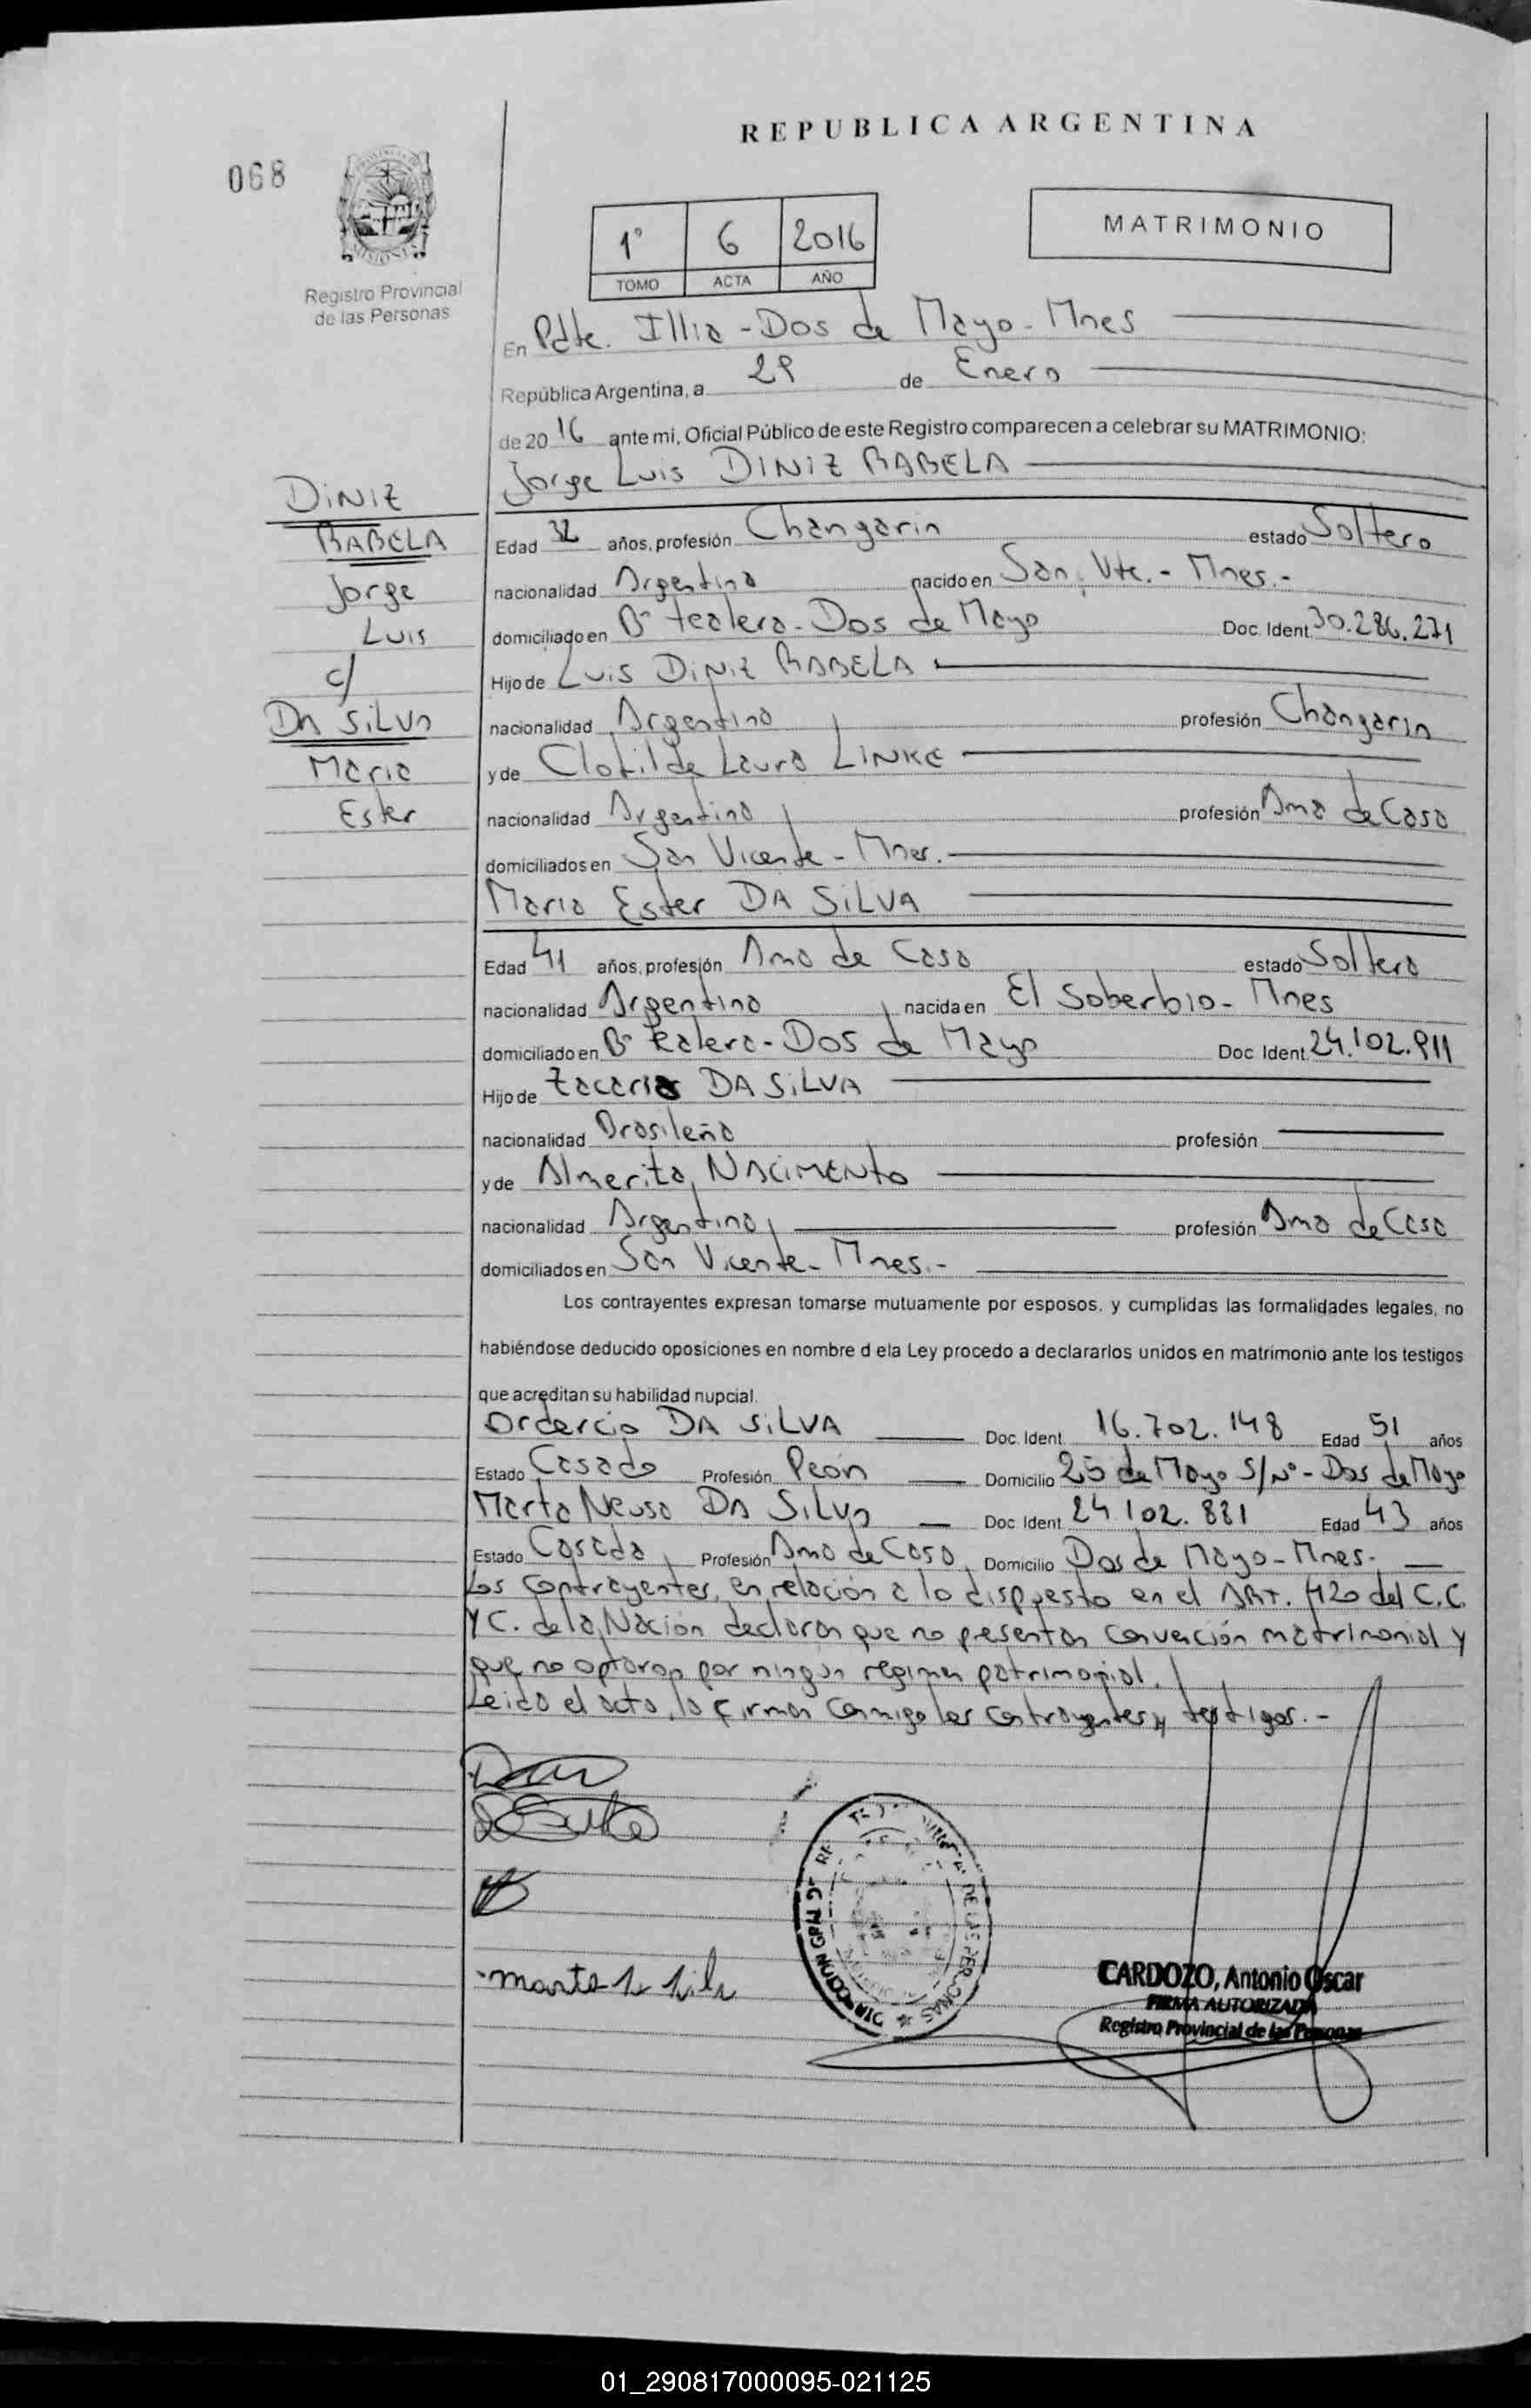 REPUBLICA ARGENTINA
068
1° 6 2016
TOMO ACTA AÑO
MATRIMONIO
Registro Provincial
de las Personas
En Pdte. Illia - Dos de Mayo - Mnes
República Argentina, a 29 de Enero
de 2016 ante mi, Oficial Público de este Registro comparecen a celebrar su MATRIMONIO:
Jorge Luis DINIZ RABELA
DINIZ
RABELA
Jorge
Luis
c/
DA SILVA
Maria
Ester
Edad 32 años, profesión Changarin estado Soltero
nacionalidad Argentina nacido en San Vte. - Mnes.-
domiciliado en B° tealera - Dos de Mayo Doc. Ident. 30.286.271
Hijo de Luis DINIZ RABELA
nacionalidad Argentina profesión Changarin
y de Clotilde Laura LINKE
nacionalidad Argentina profesión Ama de Casa
domiciliados en San Vicente - Mnes.
Maria Ester DA SILVA
Edad 41 años, profesión Ama de Casa estado Soltera
nacionalidad Argentina nacida en El Soberbio - Mnes
domiciliado en B° tealera - Dos de Mayo Doc Ident. 24.102.911
Hijo de Zacarias DA SILVA
nacionalidad Brasileña profesión
y de Almerita NACIMENTO
nacionalidad Argentina profesión Ama de Casa
domiciliados en San Vicente - Mnes.-
Los contrayentes expresan tomarse mutuamente por esposos, y cumplidas las formalidades legales, no
habiéndose deducido oposiciones en nombre d ela Ley procedo a declararlos unidos en matrimonio ante los testigos
que acreditan su habilidad nupcial.
Ordercio DA SILVA Doc. Ident. 16.702.148 Edad 51 años
Estado Casado Profesión Peón Domicilio 25 de Mayo S/N° - Dos de Mayo
Marta Neusa DA SILVA Doc Ident. 24.102.881 Edad 43 años
Estado Casada Profesión Ama de Casa Domicilio Dos de Mayo - Mnes.
Los contrayentes, en relación a lo dispuesto en el ART. 420 del C.C.
Y C. de la Nación declaran que no presentan convención matrimonial y
que no optaron por ningun regimen patrimonial.
Leida el acta, la firman conmigo los contrayentes y testigos.-
CARDOZO, Antonio Oscar
FIRMA AUTORIZADA
Registro Provincial de las Personas
01_290817000095-021125